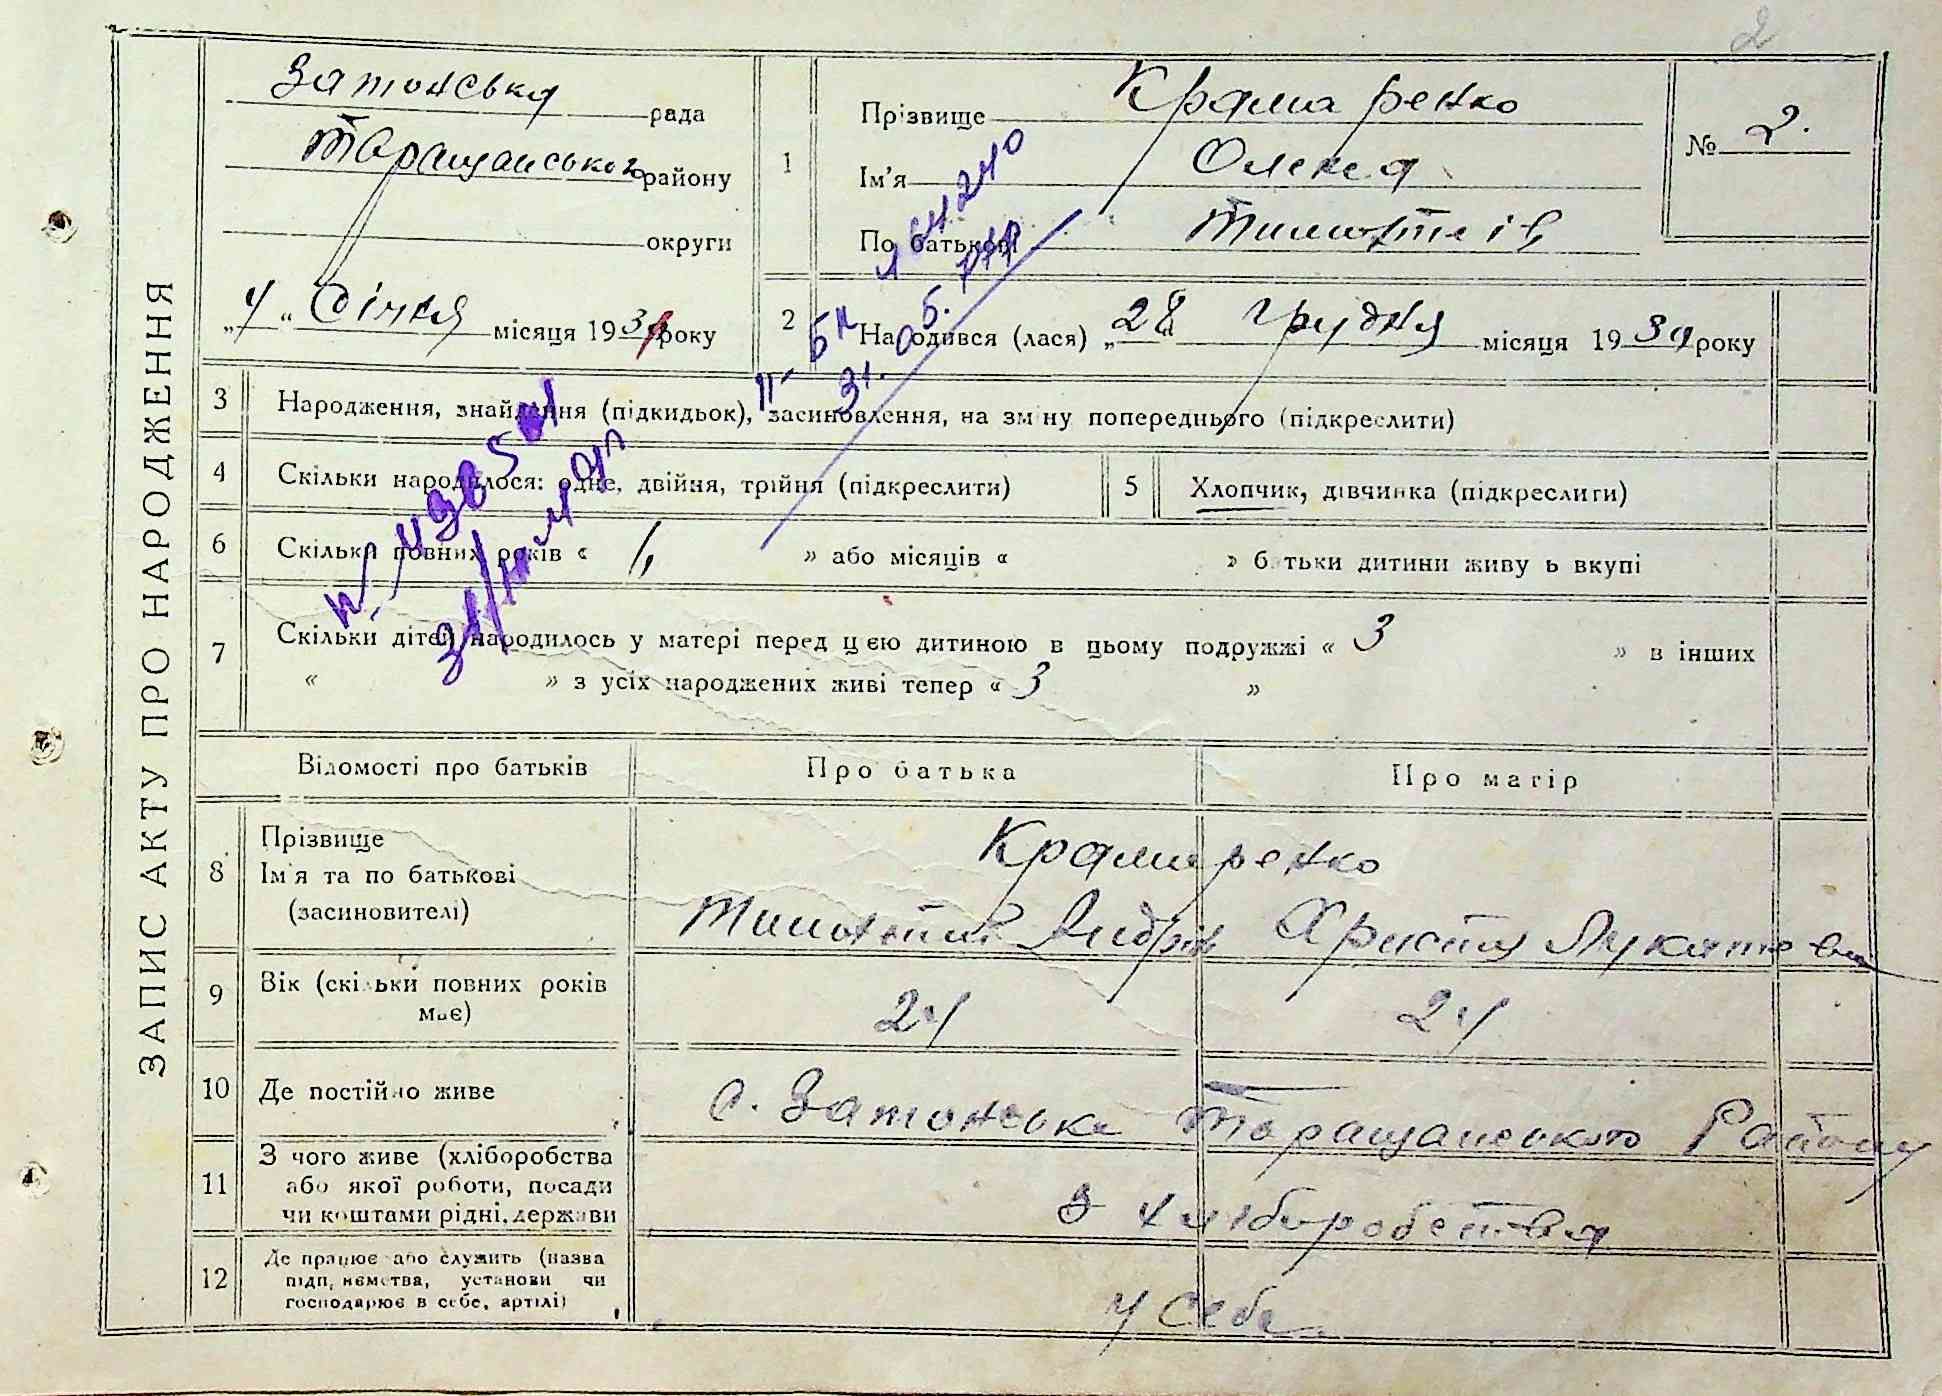 2
ЗАПИС АКТУ ПРО НАРОДЖЕННЯ
Затонська рада
Таращанського району
округи
„4“ Січня місяця 193 року
1
Прізвище Крамаренко
Ім'я Олекса
По батькові Тимофіїв
№ 2.
2
Народився (лася) „28“ Грудня місяця 1930 року
3
Народження, знайдення (підкидьок), засиновлення, на зміну попереднього (підкреслити)
4
Скільки народилося: одне, двійня, трійня (підкреслити)
5
Хлопчик, дівчинка (підкреслити)
6
Скільки повних років « » або місяців « » батьки дитини живуть вкупі
7
Скільки дітей народилось у матері перед цією дитиною в цьому подружжі « 3 » в інших
« » з усіх народжених живі тепер « 3 »
Відомості про батьків
Про батька
Про матір
8
Прізвище
Ім'я та по батькові
(засиновителі)
Крамаренко
Тимофій Андрїв Христя Лукятовна
9
Вік (скільки повних років
має)
24
24
10
Де постійно живе
с. Затонська Таращанського Району
11
З чого живе (хліборобства
або якої роботи, посади
чи коштами рідні, держави
З хліборобства
12
Де працює або служить (назва
підприємства, установи чи
господарює в себе, артілі)
У Себе